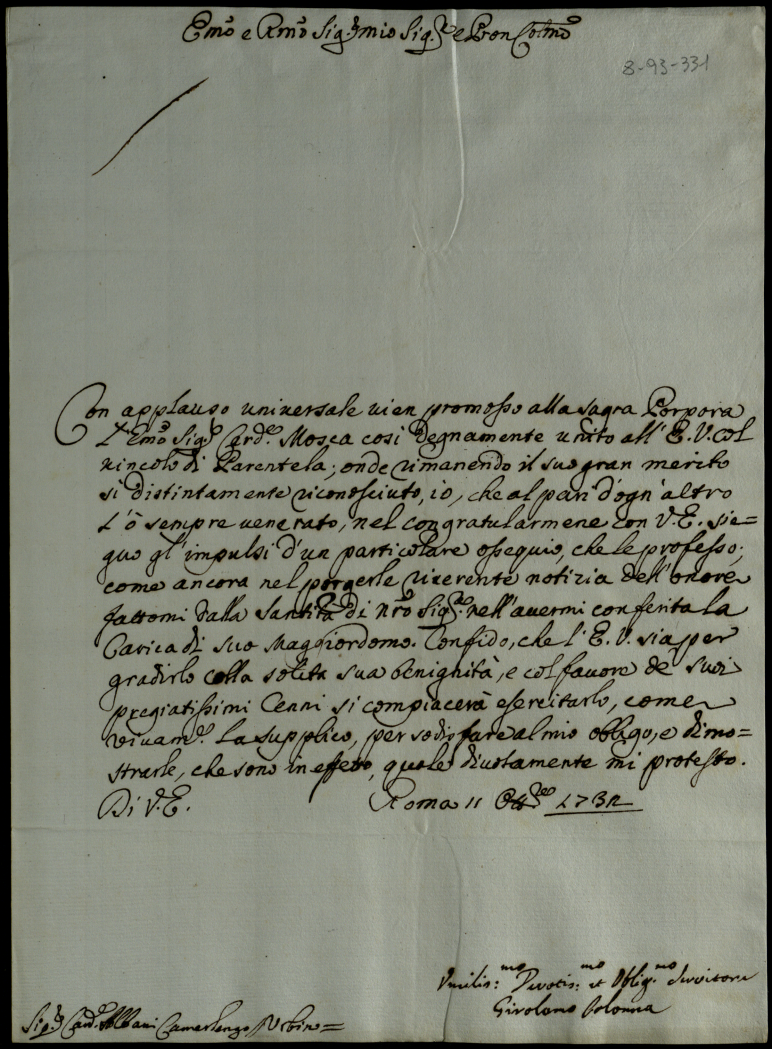 Emo e Rmo Sig.r mio Sig.re e Pron Colmo
8-93-331
Con applauso universale vien promosso alla sagra Porpora
L'Emo Sig.r Card.e Mosca così degnamente unito all'E.V. col
vincolo di Parentela; onde rimanendo il suo gran merito
sì distintamente riconosciuto, io, che al pari d'ogn'altro
l'ò sempre venerato, nel congratularmene con V.E. sie=
guo gl'impulsi d'un particolare ossequio, che le professo;
come ancora nel porgerle riverente notizia dell'onore
fattomi dalla Santità di nro Sig.re nell'avermi conferita la
Carica di suo Maggiordomo. Confido, che l'E.V. sia per
gradirlo colla solita sua benignità, e col favore de' suoi
pregiatissimi Cenni si compiacerà esercitarlo, come
vivam.e La supplico, per sodisfare al mio obbligo, e dimo=
strarle, che sono in effetto, quale divotamente mi protesto.
Di V.E. Roma 11 Ott.re 1732
Umilis:mo Devotis:mo et Oblig.mo Servitore
Girolamo Colonna
Sig.r Card.e Albani Camerlengo Urbino=